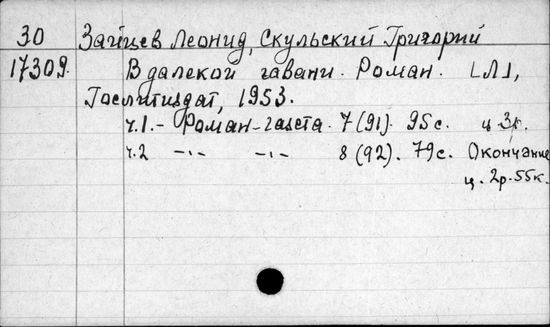 30 Зайцев Леонид, Скульский Григорий
17309. В далекой гавани. Роман. [Л],
Гослитиздат, 1953.
ч.1.- Роман-газета. 7(91). 95с. ц 3р.
ч.2 -"- -"- 8(92). 79с. Окончание
ц. 2р.55к.